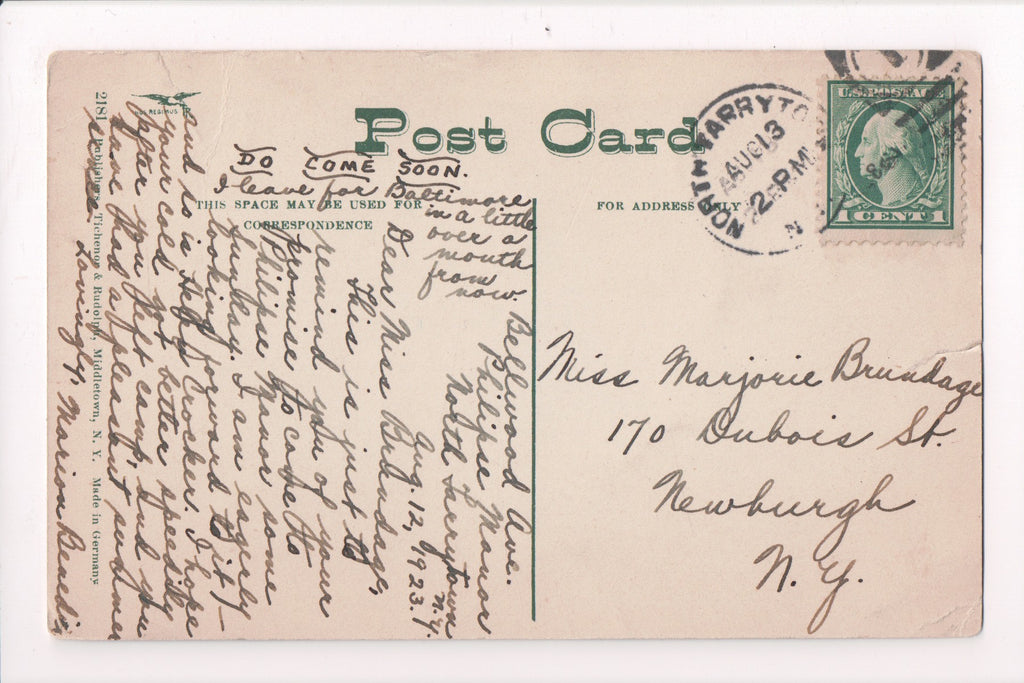 Post Card
THIS SPACE MAY BE USED FOR
CORRESPONDENCE
FOR ADDRESS ONLY
NORTH TARRYTO
AUG 13
2 PM
N
U.S. POSTAGE
1 CENT 1
DO COME SOON.
I leave for Baltimore
in a little
over a
month
from
now.
Bellwood Ave.
Philipse Manor
North Tarrytown
N.Y.
Aug. 12, 1923.
Dear Miss Brundage,
This is just to
remind you of your
promise to come to
Philipse Manor some
Sunday. I am eagerly
looking forward to it,—
and so is Helen Crocker. I hope
your cold got better speedily
after you left camp, and you
have had a pleasant summer
Lovingly, Marion Beach
Miss Marjorie Brundage
170 Dubois St.
Newburgh
N.Y.
2181 Publishers Tichenor & Rudolph, Middletown, N. Y. Made in Germany